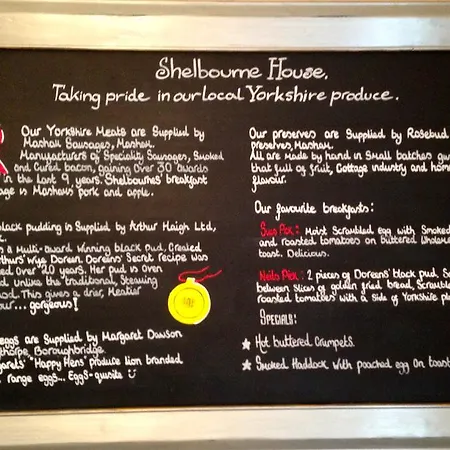 Shelbourne House.
Taking pride in our local Yorkshire produce.
Our Yorkshire Meats are Supplied by
Masham Sausages, Masham.
Manufacturers of Speciality Sausages, Smoked
and Cured bacon, gaining over 30 awards
in the last 9 years. Shelbournes' breakfast
age is Mashams pork and apple.
black pudding is Supplied by Arthur Haigh Ltd,
s a Multi-award winning black pud, Created
thurs' wife Doreen. Doreens' Secret recipe was
ed over 20 years. Her pud is oven
ed unlike the traditional, Steaming
od. This gives a drier, Meatier
our... gorgeous!
eggs are Supplied by Margaret Dawson
thorpe, Boroughbridge.
garets' "Happy Hens' produce lion branded
range eggs... Eggs-quisite
Our preserves are Supplied by Rosebud
preserves, Masham.
All are made by hand in Small batches
that full of fruit, Cottage industry and home
flavour.
Our favourite breakfasts:
Sue's Pick: Moist Scrambled egg with Smoked
and roasted tomatoes on buttered
toast. Delicious.
Neil's Pick: 2 pieces of Doreens' black pud, S
between Slices of golden fried bread, Scramble
roasted tomatoes with a side of Yorkshire
Specials:
Hot buttered Crumpets.
Smoked Haddock with poached egg on toast